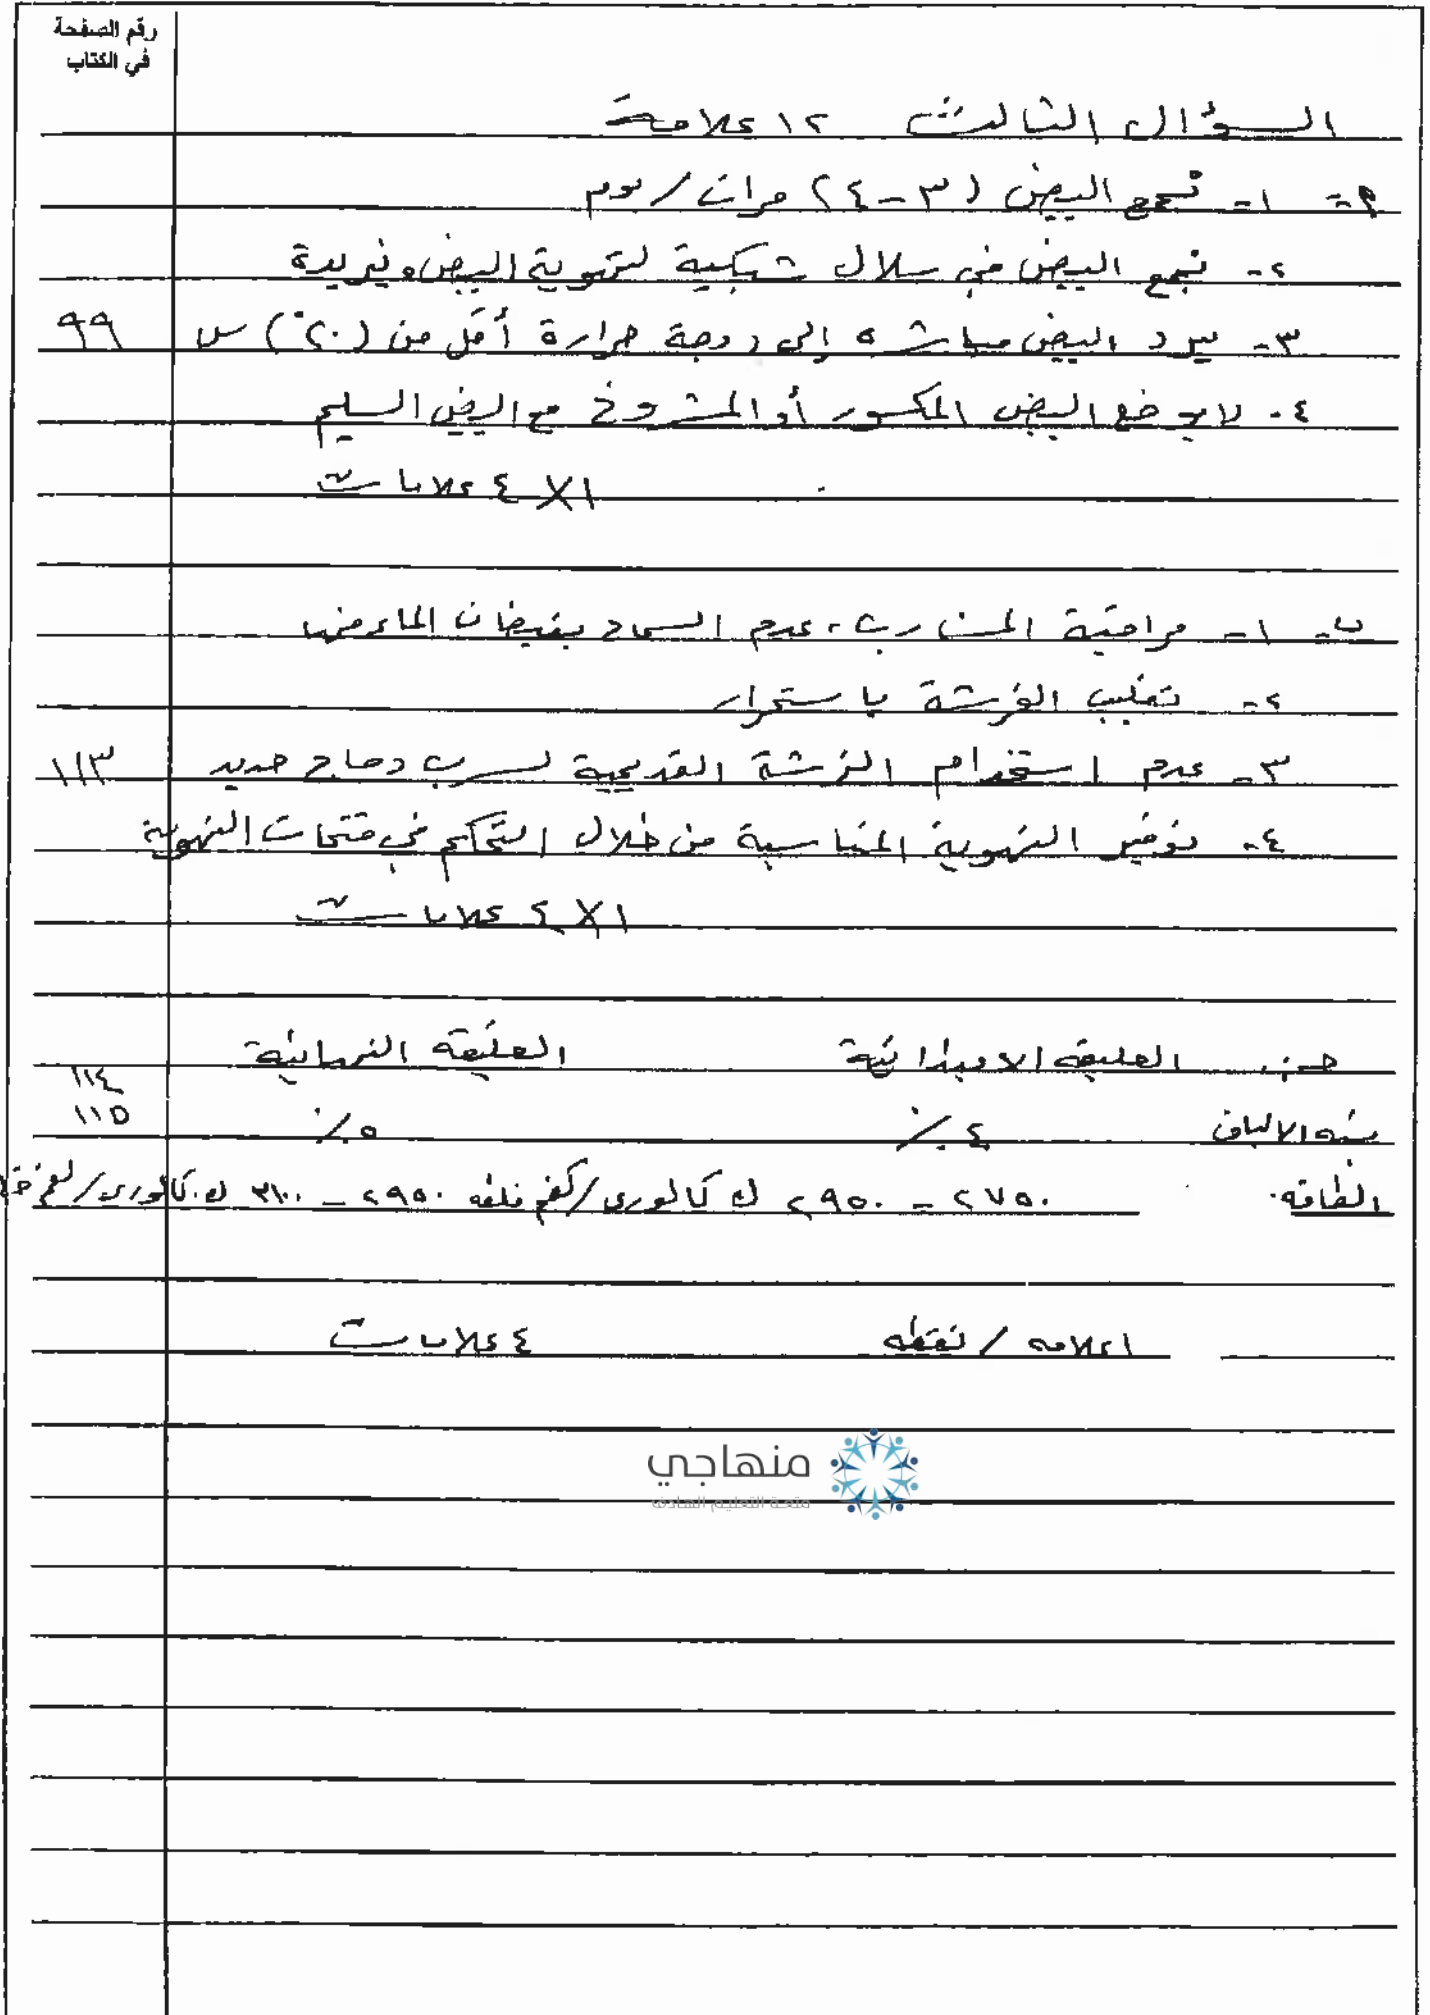 رقم الصفحة
في الكتاب
السؤال الثالث ١٢ علامة
٩- ١- تجمع البيض (٣-٤) مرات/يوم
٢- تجمع البيض في سلال شبكية لتهوية البيض وتبريدة
٣- يبرد البيض مباشرة إلى درجة حرارة أقل من (٢٠°) س ٩٩
٤- لا يوضع البيض المكسور أو المشروخ مع البيض السليم
١ X ٤ علامات
ب- ١- مراقبة المشارب، عدم السماح بفيضان الماء منها
٢- تقليب الفرشة باستمرار
٣- عدم استخدام الفرشة القديمة لسرب دجاج جديد ١١٣
٤- توفير التهوية المناسبة من خلال التحكم في فتحات التهوية
١ X ٤ علامات
ج- العليقة الابتدائية العليقة النهائية
١١٤
١١٥
نسبة الالياف ٤٪ ٥٪
الطاقة ٢٧٥٠ - ٢٩٥٠ ك كالوري/كغم علفه ٢٩٥٠ - ٣١٠٠ ك.كالوري/كغم
١علامه / نقطه ٤ علامات
منهاجي
متعة التعليم الهادف